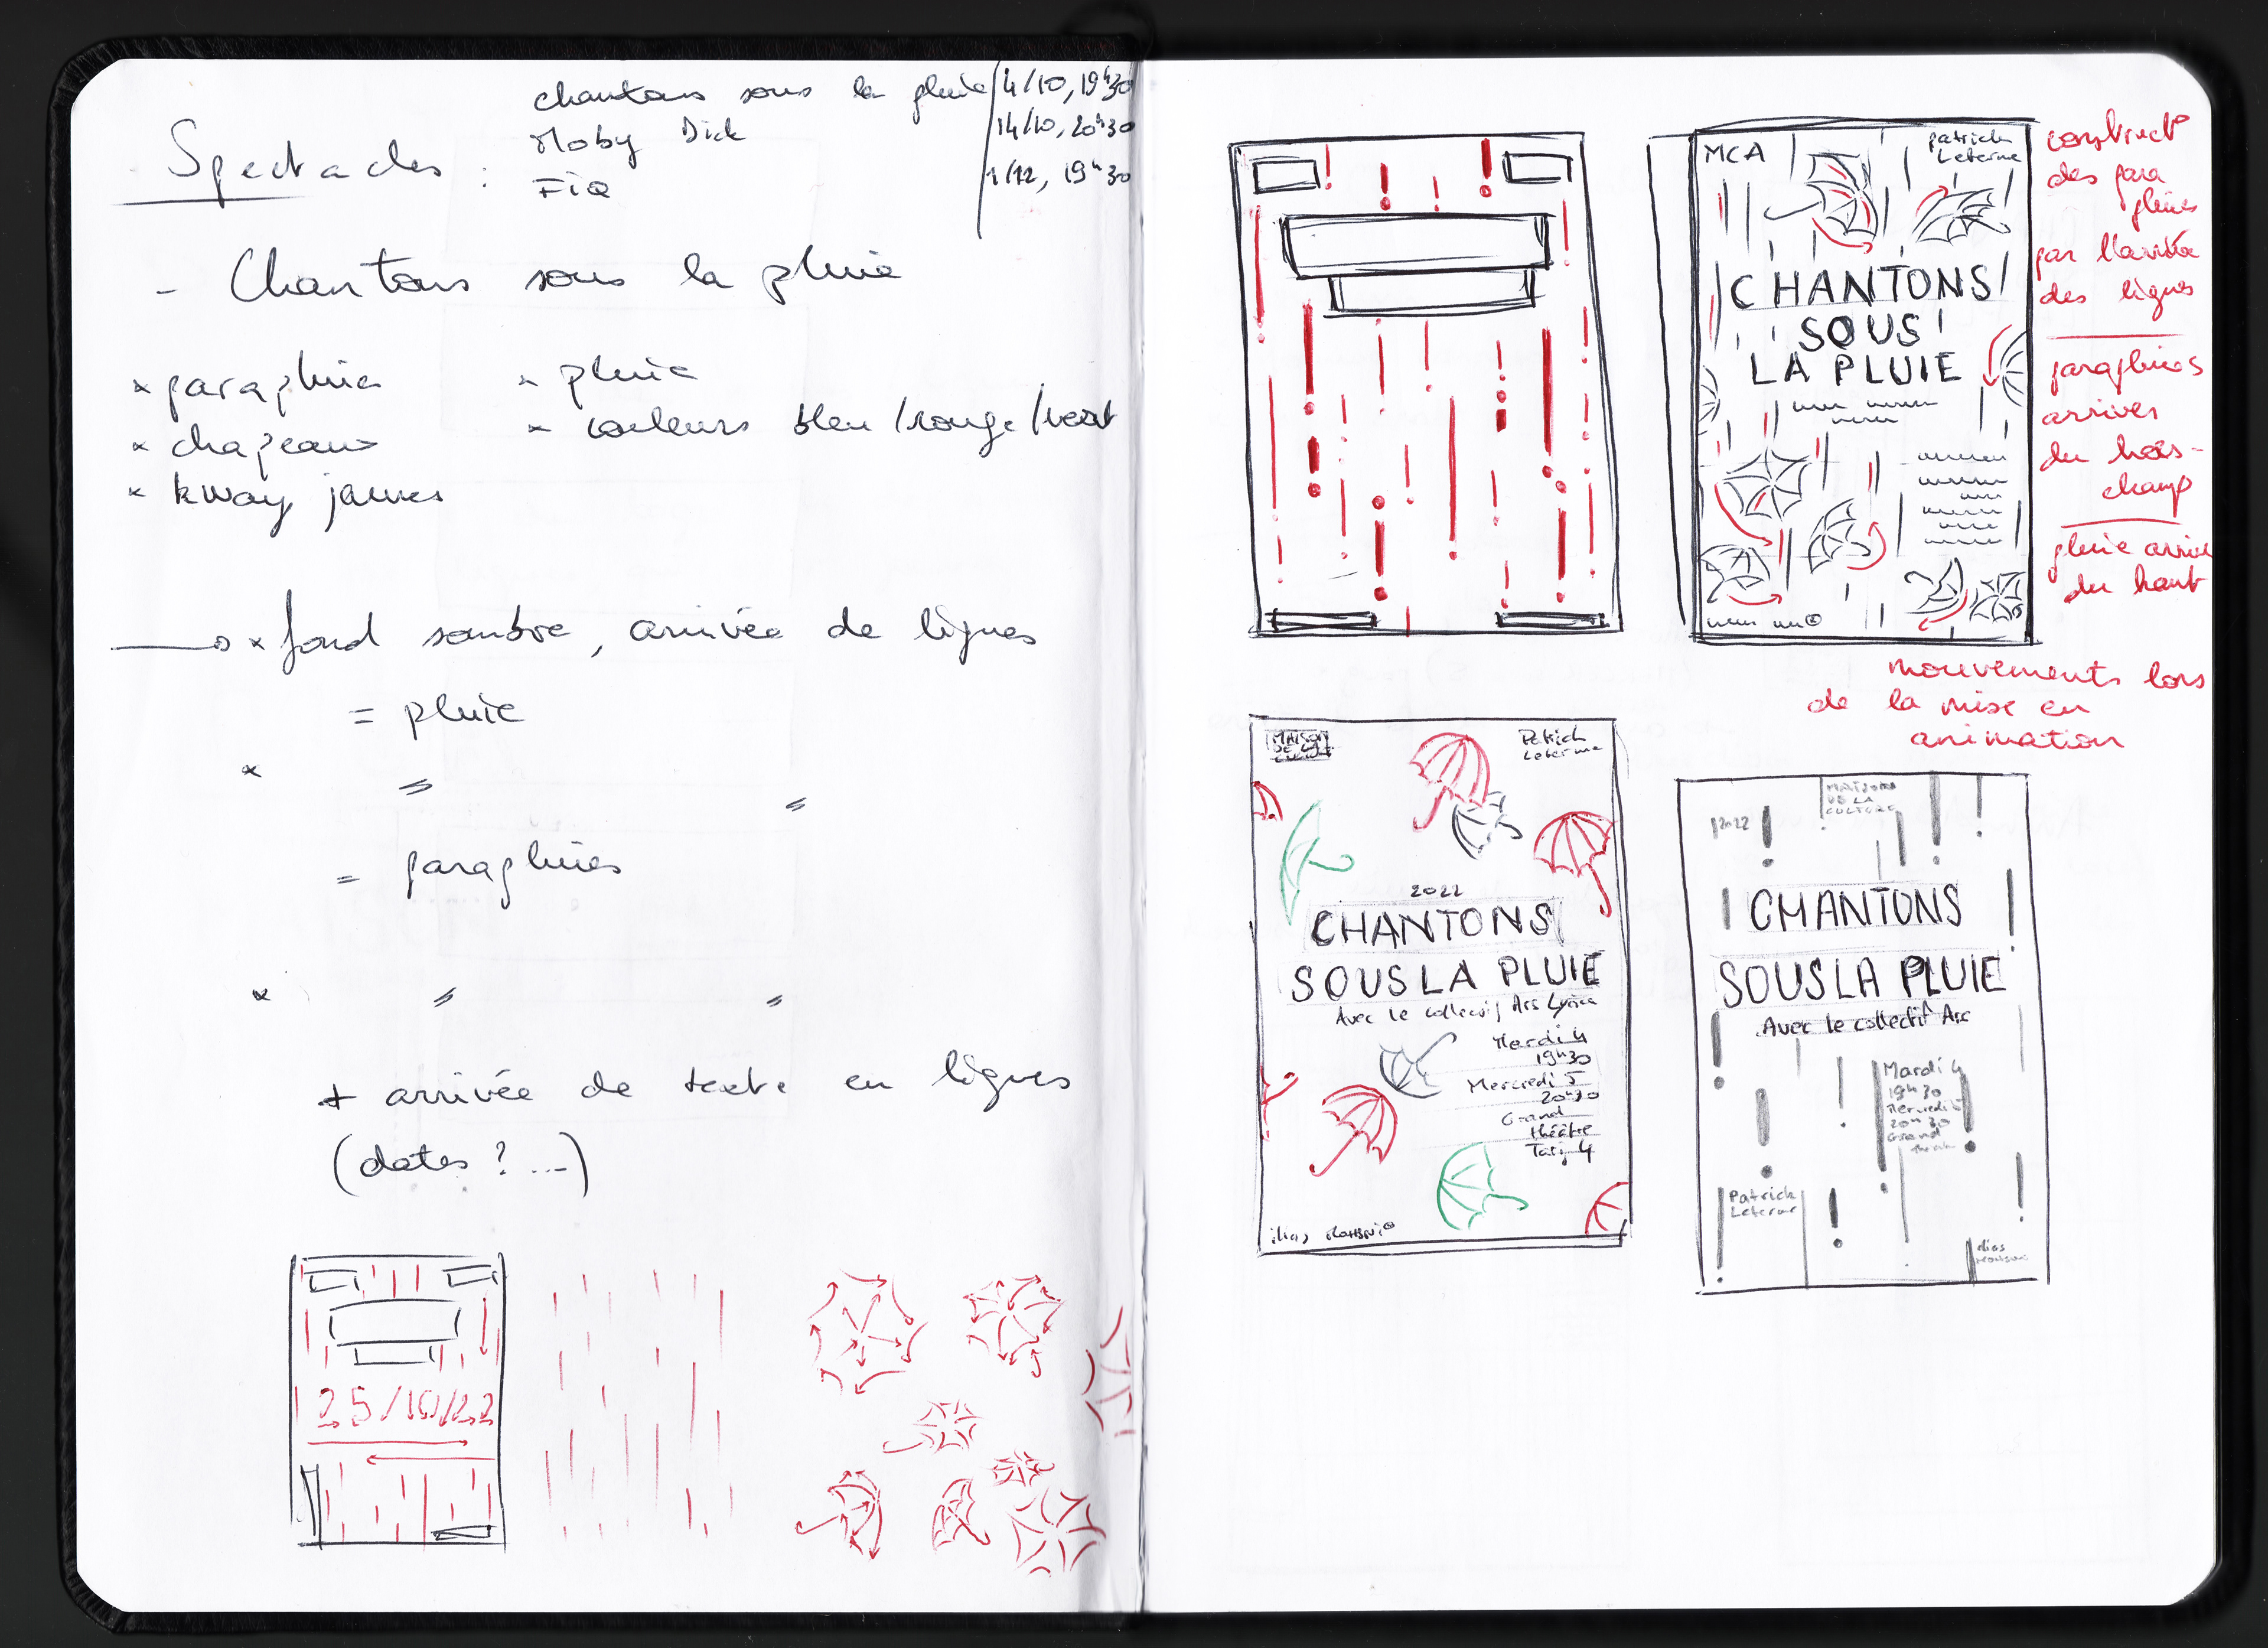 Spectacles :
chantons sous la pluie
Moby Dick
FIQ
4/10, 19h30
14/10, 20h30
1/12, 19h30
- Chantons sous la pluie
× parapluie
× chapeaux
× kway jaunes
× pluie
× couleurs bleu / rouge / vert
× fond sombre, arrivée de lignes
= pluie
× " "
= parapluies
× " "
+ arrivée de texte en lignes
(dates ? ...)
25/10/22
MCA
Patrick
Leterme
CHANTONS
SOUS
LA PLUIE
construct°
des para
pluies
par l'arrivée
des lignes
parapluies
arrivés
du hors-
champ
pluie arrive
du haut
mouvements lors
de la mise en
animation
MAISON
DE LA
Patrick
Leterme
2022
CHANTONS
SOUS LA PLUIE
Avec le collectif Ars Lyrica
Mardi 4
19h30
Mercredi 5
20h30
Grand
théâtre
Tarif 4
2022
MAISON
DE LA
CULTURE
CHANTONS
SOUS LA PLUIE
Avec le collectif Arc
Mardi 4
19h30
Mercredi 5
20h30
Grand
Patrick
Leterme